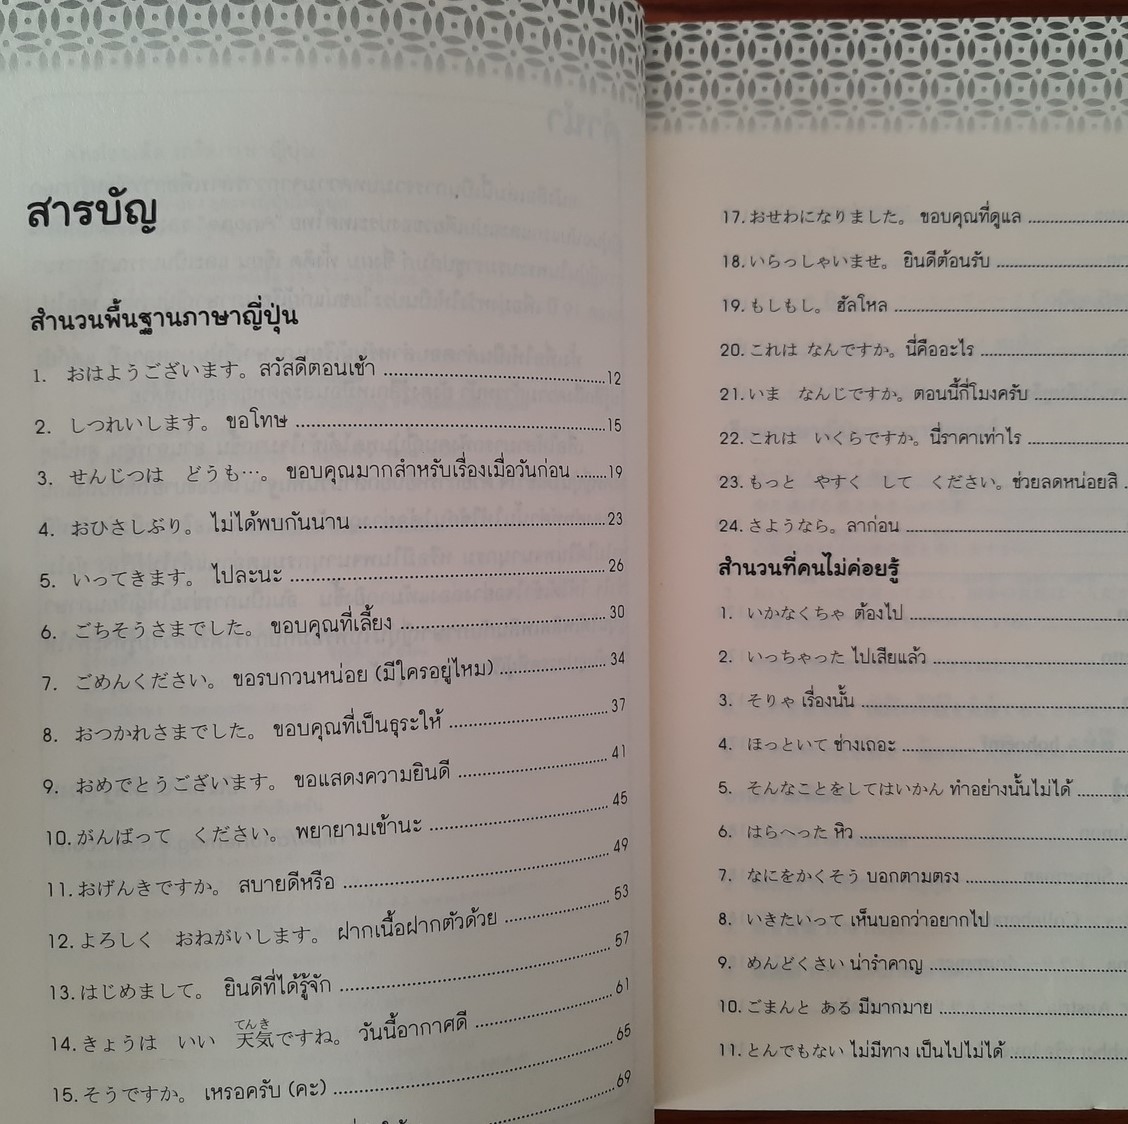 สารบัญ
สำนวนพื้นฐานภาษาญี่ปุ่น
1. おはようございます。 สวัสดีตอนเช้า ........12
2. しつれいします。 ขอโทษ ........15
3. せんじつは どうも…。 ขอบคุณมากสำหรับเรื่องเมื่อวันก่อน ........19
4. おひさしぶり。 ไม่ได้พบกันนาน ........23
5. いってきます。 ไปละนะ ........26
6. ごちそうさまでした。 ขอบคุณที่เลี้ยง ........30
7. ごめんください。 ขอรบกวนหน่อย (มีใครอยู่ไหม) ........34
8. おつかれさまでした。 ขอบคุณที่เป็นธุระให้ ........37
9. おめでとうございます。 ขอแสดงความยินดี ........41
10. がんばって ください。 พยายามเข้านะ ........45
11. おげんきですか。 สบายดีหรือ ........49
12. よろしく おねがいします。 ฝากเนื้อฝากตัวด้วย ........53
13. はじめまして。 ยินดีที่ได้รู้จัก ........57
てんき
14. きょうは いい 天気ですね。 วันนี้อากาศดี ........61
15. そうですか。 เหรอครับ (คะ) ........65
69
17. おせわになりました。 ขอบคุณที่ดูแล ........
18. いらっしゃいませ。 ยินดีต้อนรับ ........
19. もしもし。 ฮัลโหล ........
20. これは なんですか。 นี่คืออะไร ........
21. いま なんじですか。 ตอนนี้กี่โมงครับ ........
22. これは いくらですか。 นี่ราคาเท่าไร ........
23. もっと やすく して ください。 ช่วยลดหน่อยสิ ..
24. さようなら。 ลาก่อน ........
สำนวนที่คนไม่ค่อยรู้
1. いかなくちゃ ต้องไป ........
2. いっちゃった ไปเสียแล้ว ........
3. そりゃ เรื่องนั้น ........
4. ほっといて ช่างเถอะ ........
5. そんなことをしてはいかん ทำอย่างนั้นไม่ได้ ........
6. はらへった หิว ........
7. なにをかくそう บอกตามตรง ........
8. いきたいって เห็นบอกว่าอยากไป ........
9. めんどくさい น่ารำคาญ ........
10. ごまんと ある มีมากมาย ........
11. とんでもない ไม่มีทาง เป็นไปไม่ได้ ........